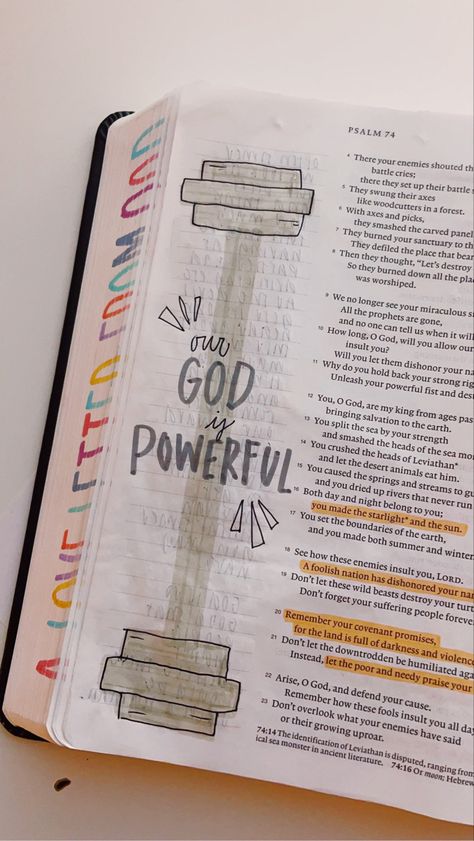 A LOVE LETTER FROM GOD
our
GOD
is
POWERFUL
PSALM 74
4 There your enemies shouted
battle cries;
there they set up their battle
5 They swung their axes
like woodcutters in a forest.
6 With axes and picks,
they smashed the carved panel
7 They burned your sanctuary to the
They defiled the place that bear
8 Then they thought, “Let’s destroy
So they burned down all the
was worshiped.
9 We no longer see your miraculous
All the prophets are gone,
and no one can tell us when it will
10 How long, O God, will you allow our
insult you?
Will you let them dishonor your
11 Why do you hold back your strong
Unleash your powerful fist and
12 You, O God, are my king from ages
bringing salvation to the earth.
13 You split the sea by your strength
and smashed the heads of the sea
14 You crushed the heads of Leviathan*
and let the desert animals eat him.
15 You caused the springs and streams to
and you dried up rivers that never run
16 Both day and night belong to you;
you made the starlight* and the sun.
17 You set the boundaries of the earth,
and you made both summer and
18 See how these enemies insult you, LORD.
A foolish nation has dishonored your
19 Don’t let these wild beasts destroy your
Don’t forget your suffering people
20 Remember your covenant promises,
for the land is full of darkness and
21 Don’t let the downtrodden be humiliated
Instead, let the poor and needy praise
22 Arise, O God, and defend your cause.
Remember how these fools insult you all
23 Don’t overlook what your enemies have said
or their growing uproar.
74:14 The identification of Leviathan is disputed, ranging from
ical sea monster in ancient literature. 74:16 Or moon; Hebrew